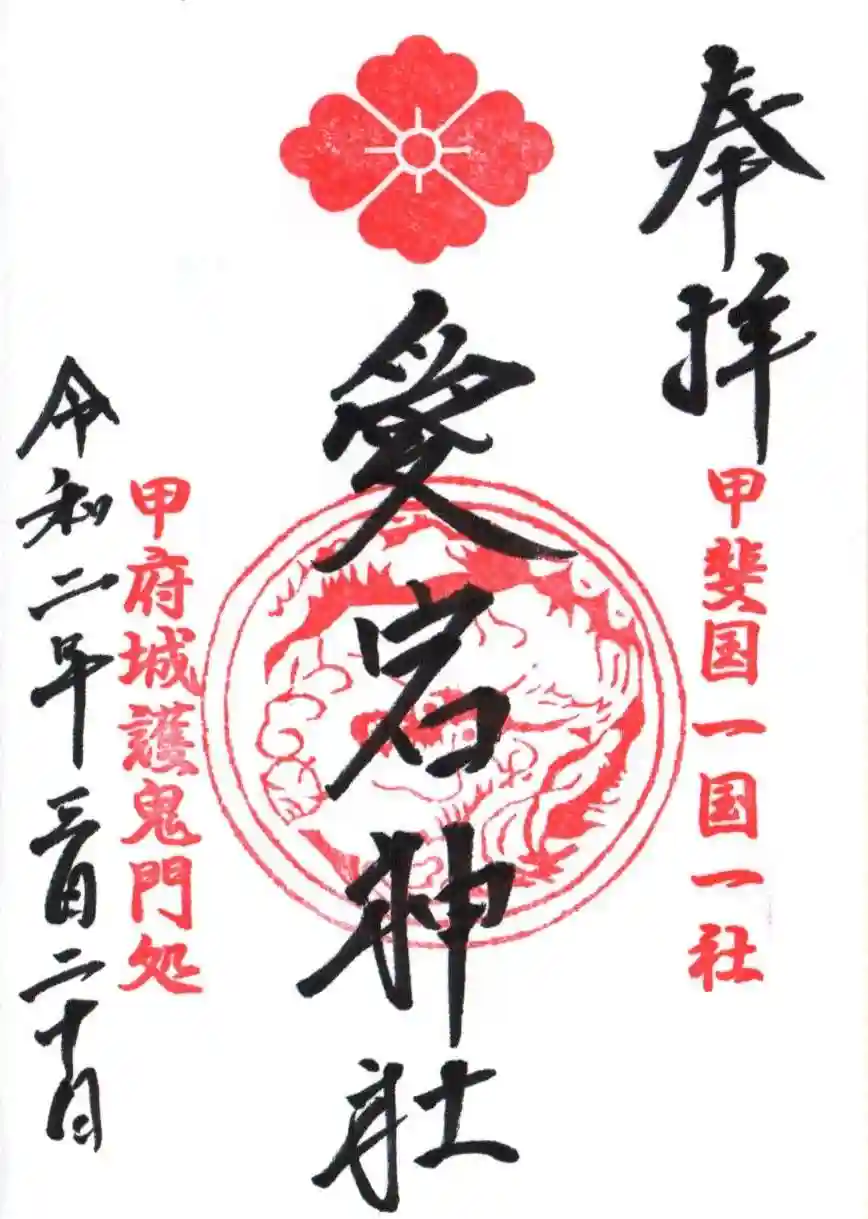 奉拝
甲斐国一国一社
愛宕神社
甲府城護鬼門処
令和二年三月二十日